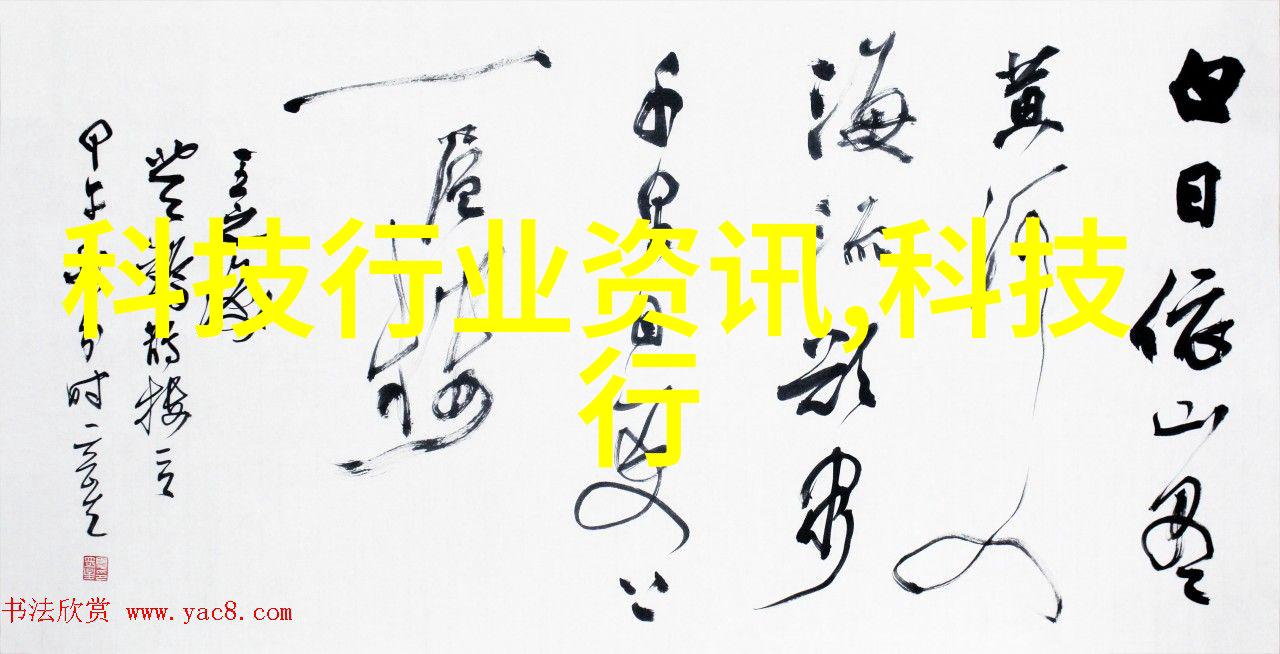 白日依山盡
黄河入
海流欲穷
千里目更上
一層樓
王之涣
科技行业资讯,科技
行
书法欣赏 www.yac8.com